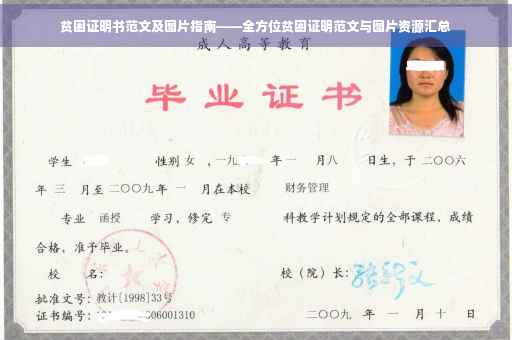 贫困证明书范文及图片指南——全方位贫困证明范文与图片资源汇总
成人高等教育
毕业证书
学生 性别 女 ，一九 年 一 月八 日生，于 二〇〇六
年 三 月至 二〇〇九 年 一 月在本校 财务管理
专业 函授 学习，修完 专 科教学计划规定的全部课程，成绩
合格，准予毕业。
校 名： 校（院）长：
批准文号：教计[1998]33号
证书编号： 06001310 二〇〇九 年 一 月 十 日